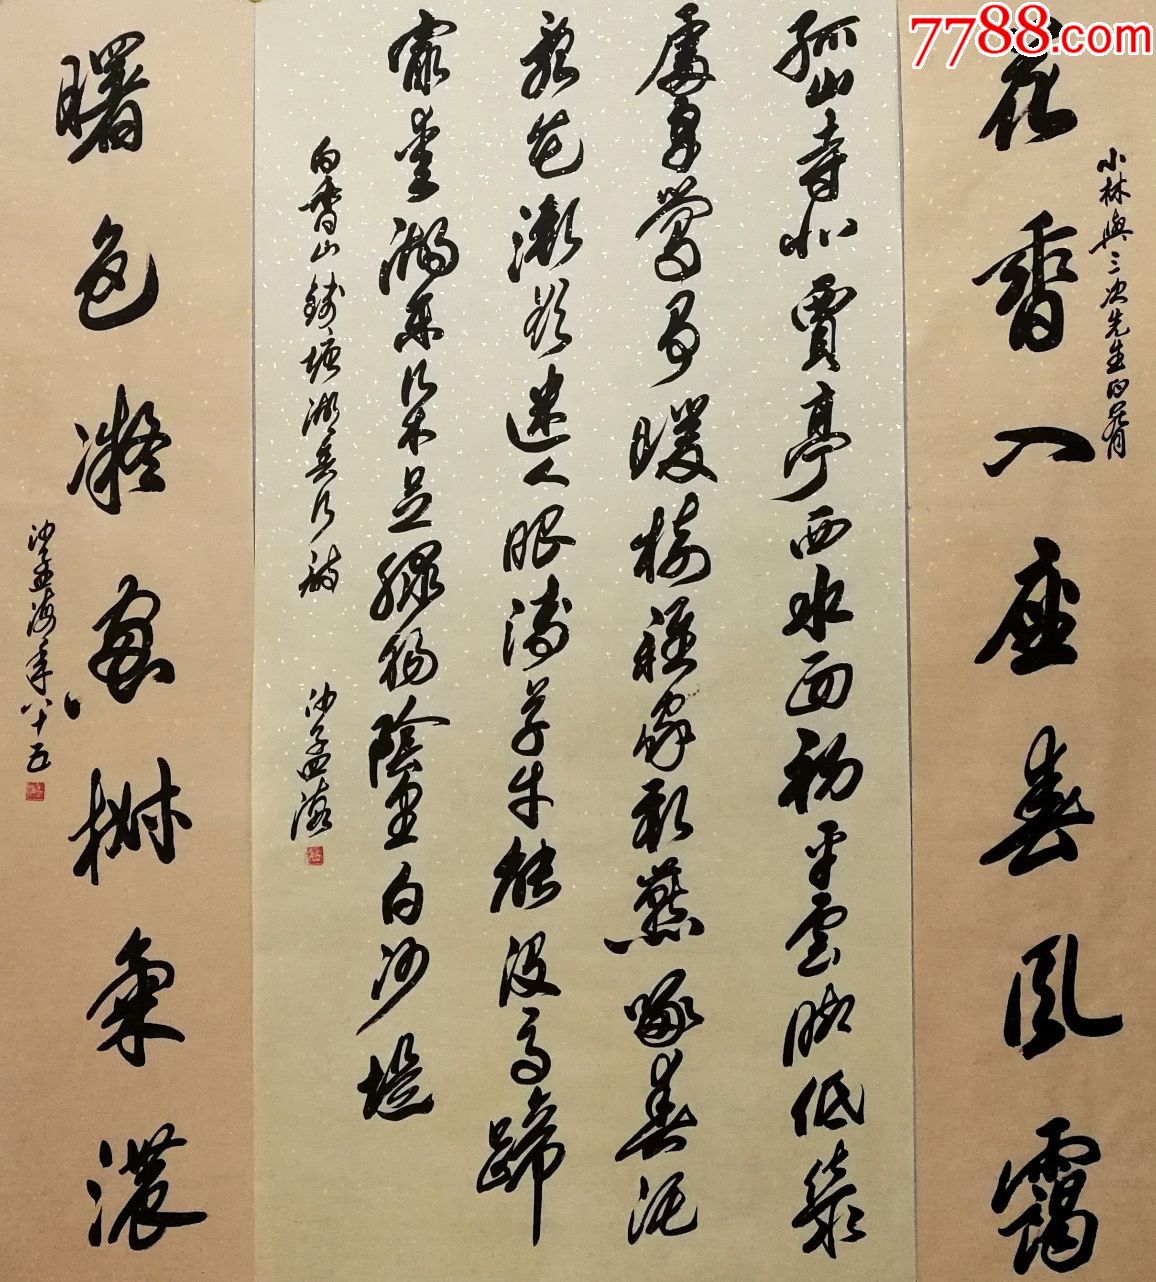 7788.com
花香入座春風靄
小林與三次先生
孤山寺北賈亭西水面初平雲脚低幾
處早鶯爭暖樹誰家新燕啄春泥
亂花漸欲迷人眼淺草才能没馬蹄
最愛湖東行不足緑楊陰里白沙堤
白香山錢塘湖春行詩 沙孟海
曙色凝窗樹氣濃
沙孟海年八十五